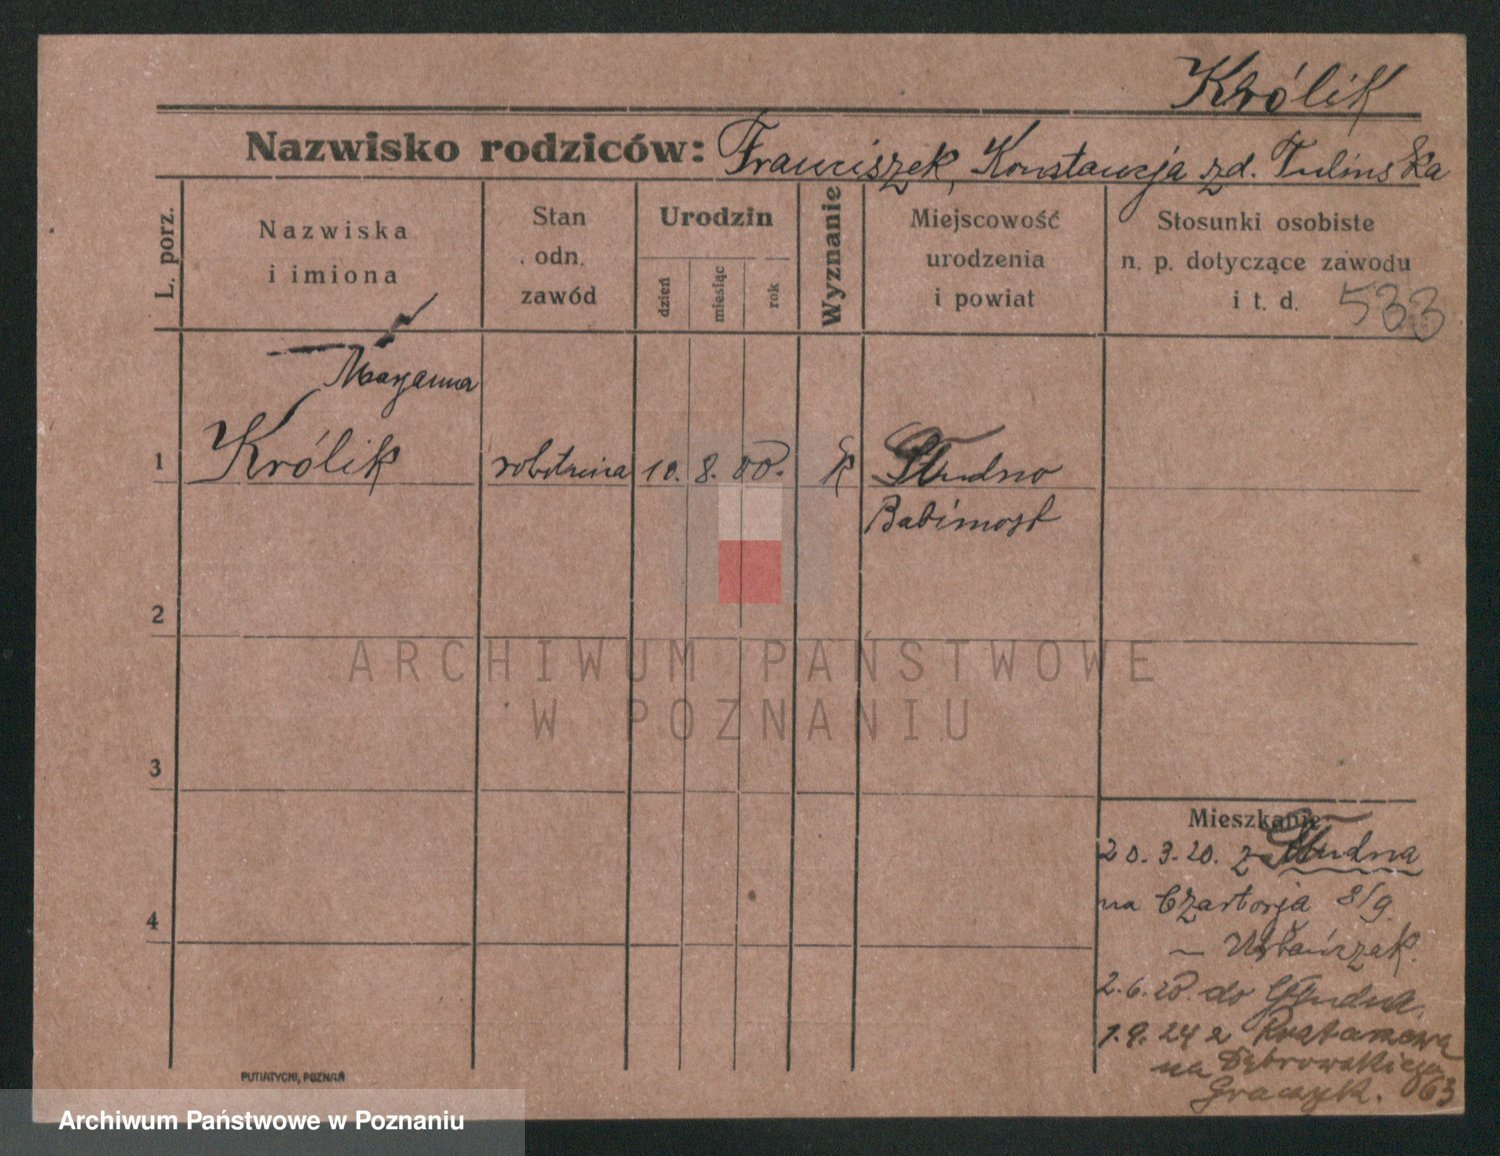 Królik
Nazwisko rodziców: Franciszek, Konstancja zd. Tulinska
L. porz.
Nazwiska
i imiona
Stan
odn.
zawód
Urodzin
dzień
miesiąc
rok
Wyznanie
Miejscowość
urodzenia
i powiat
Stosunki osobiste
n. p. dotyczące zawodu
i t. d. 533
Maryanna
1 Królik robotnica 10. 8. 00. K Głudno
Babimost
2
ARCHIWUM PAŃSTWOWE
W POZNANIU
3
Mieszkanie:
20.3.20. z
na Czartorja 8/9.
4
2.6.20. do
1.9.24 z
na Dąbrowskiego 63
Graczyk.
PUTIATYCKI, POZNAŃ
Archiwum Państwowe w Poznaniu